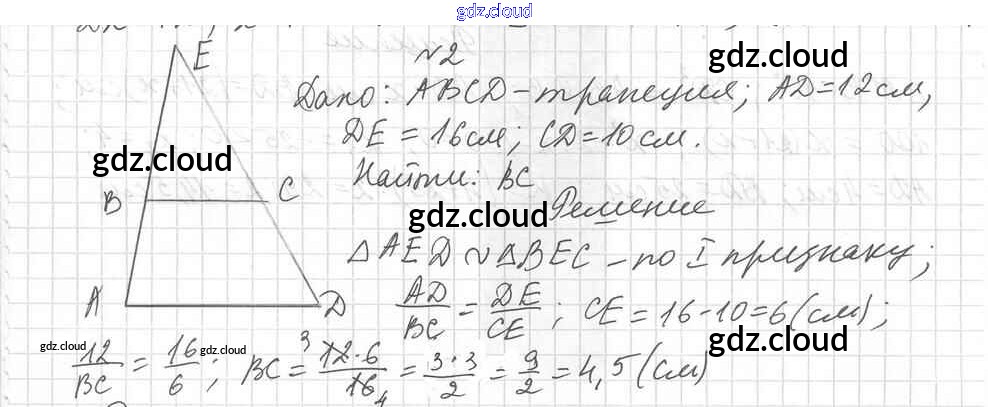 gdz.cloud
E
№2
gdz.cloud
Дано: ABCD – трапеция; AD = 12 см,
DE = 16 см; CD = 10 см.
gdz.cloud
Найти: BC
B C
gdz.cloud Решение
△AED ∾ △BEC – по I признаку;
A D
AD/BC = DE/CE; CE = 16 - 10 = 6 (см);
gdz.cloud gdz.cloud gdz.cloud
12/BC = 16/6; BC = 3 12·6/16 4 = 3·3/2 = 9/2 = 4,5 (см)